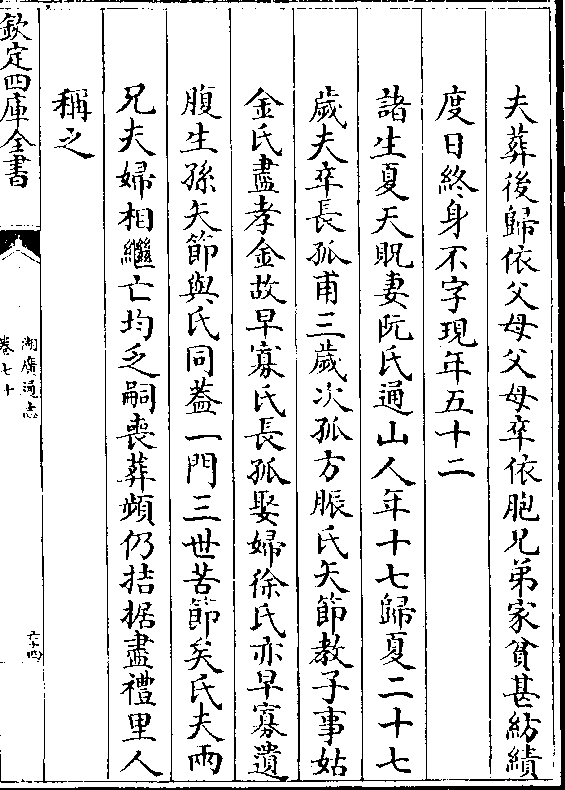 夫葬後歸依父母父母卒依胞兄弟家貧甚紡績
度日終身不字現年五十二
諸生夏天貺妻阮氏通山人年十七歸夏二十七
歲夫卒長孤甫三歲次孤方脤氏矢節教子事姑
金氏盡孝金故早寡氏長孤娶婦徐氏亦早寡遺
腹生孫矢節與氏同蓋一門三世苦節矣氏夫兩
兄夫婦相繼亡均乏嗣喪葬頻仍拮据盡禮里人
稱之
欽定四庫全書
湖廣通志
卷七十
六十四